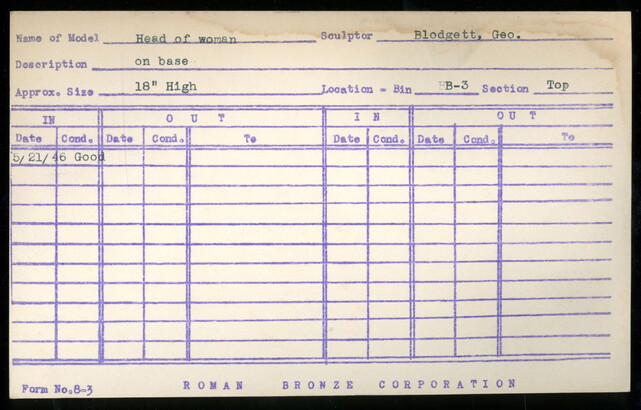 Name of Model Head of woman Sculptor Blodgett, Geo.
Description on base
Approx. Size 18" High Location - Bin BB-3 Section Top
IN OUT IN OUT
Date Cond. Date Cond. To Date Cond. Date Cond. To
5/21/46 Good
Form No. 8-3 ROMAN BRONZE CORPORATION